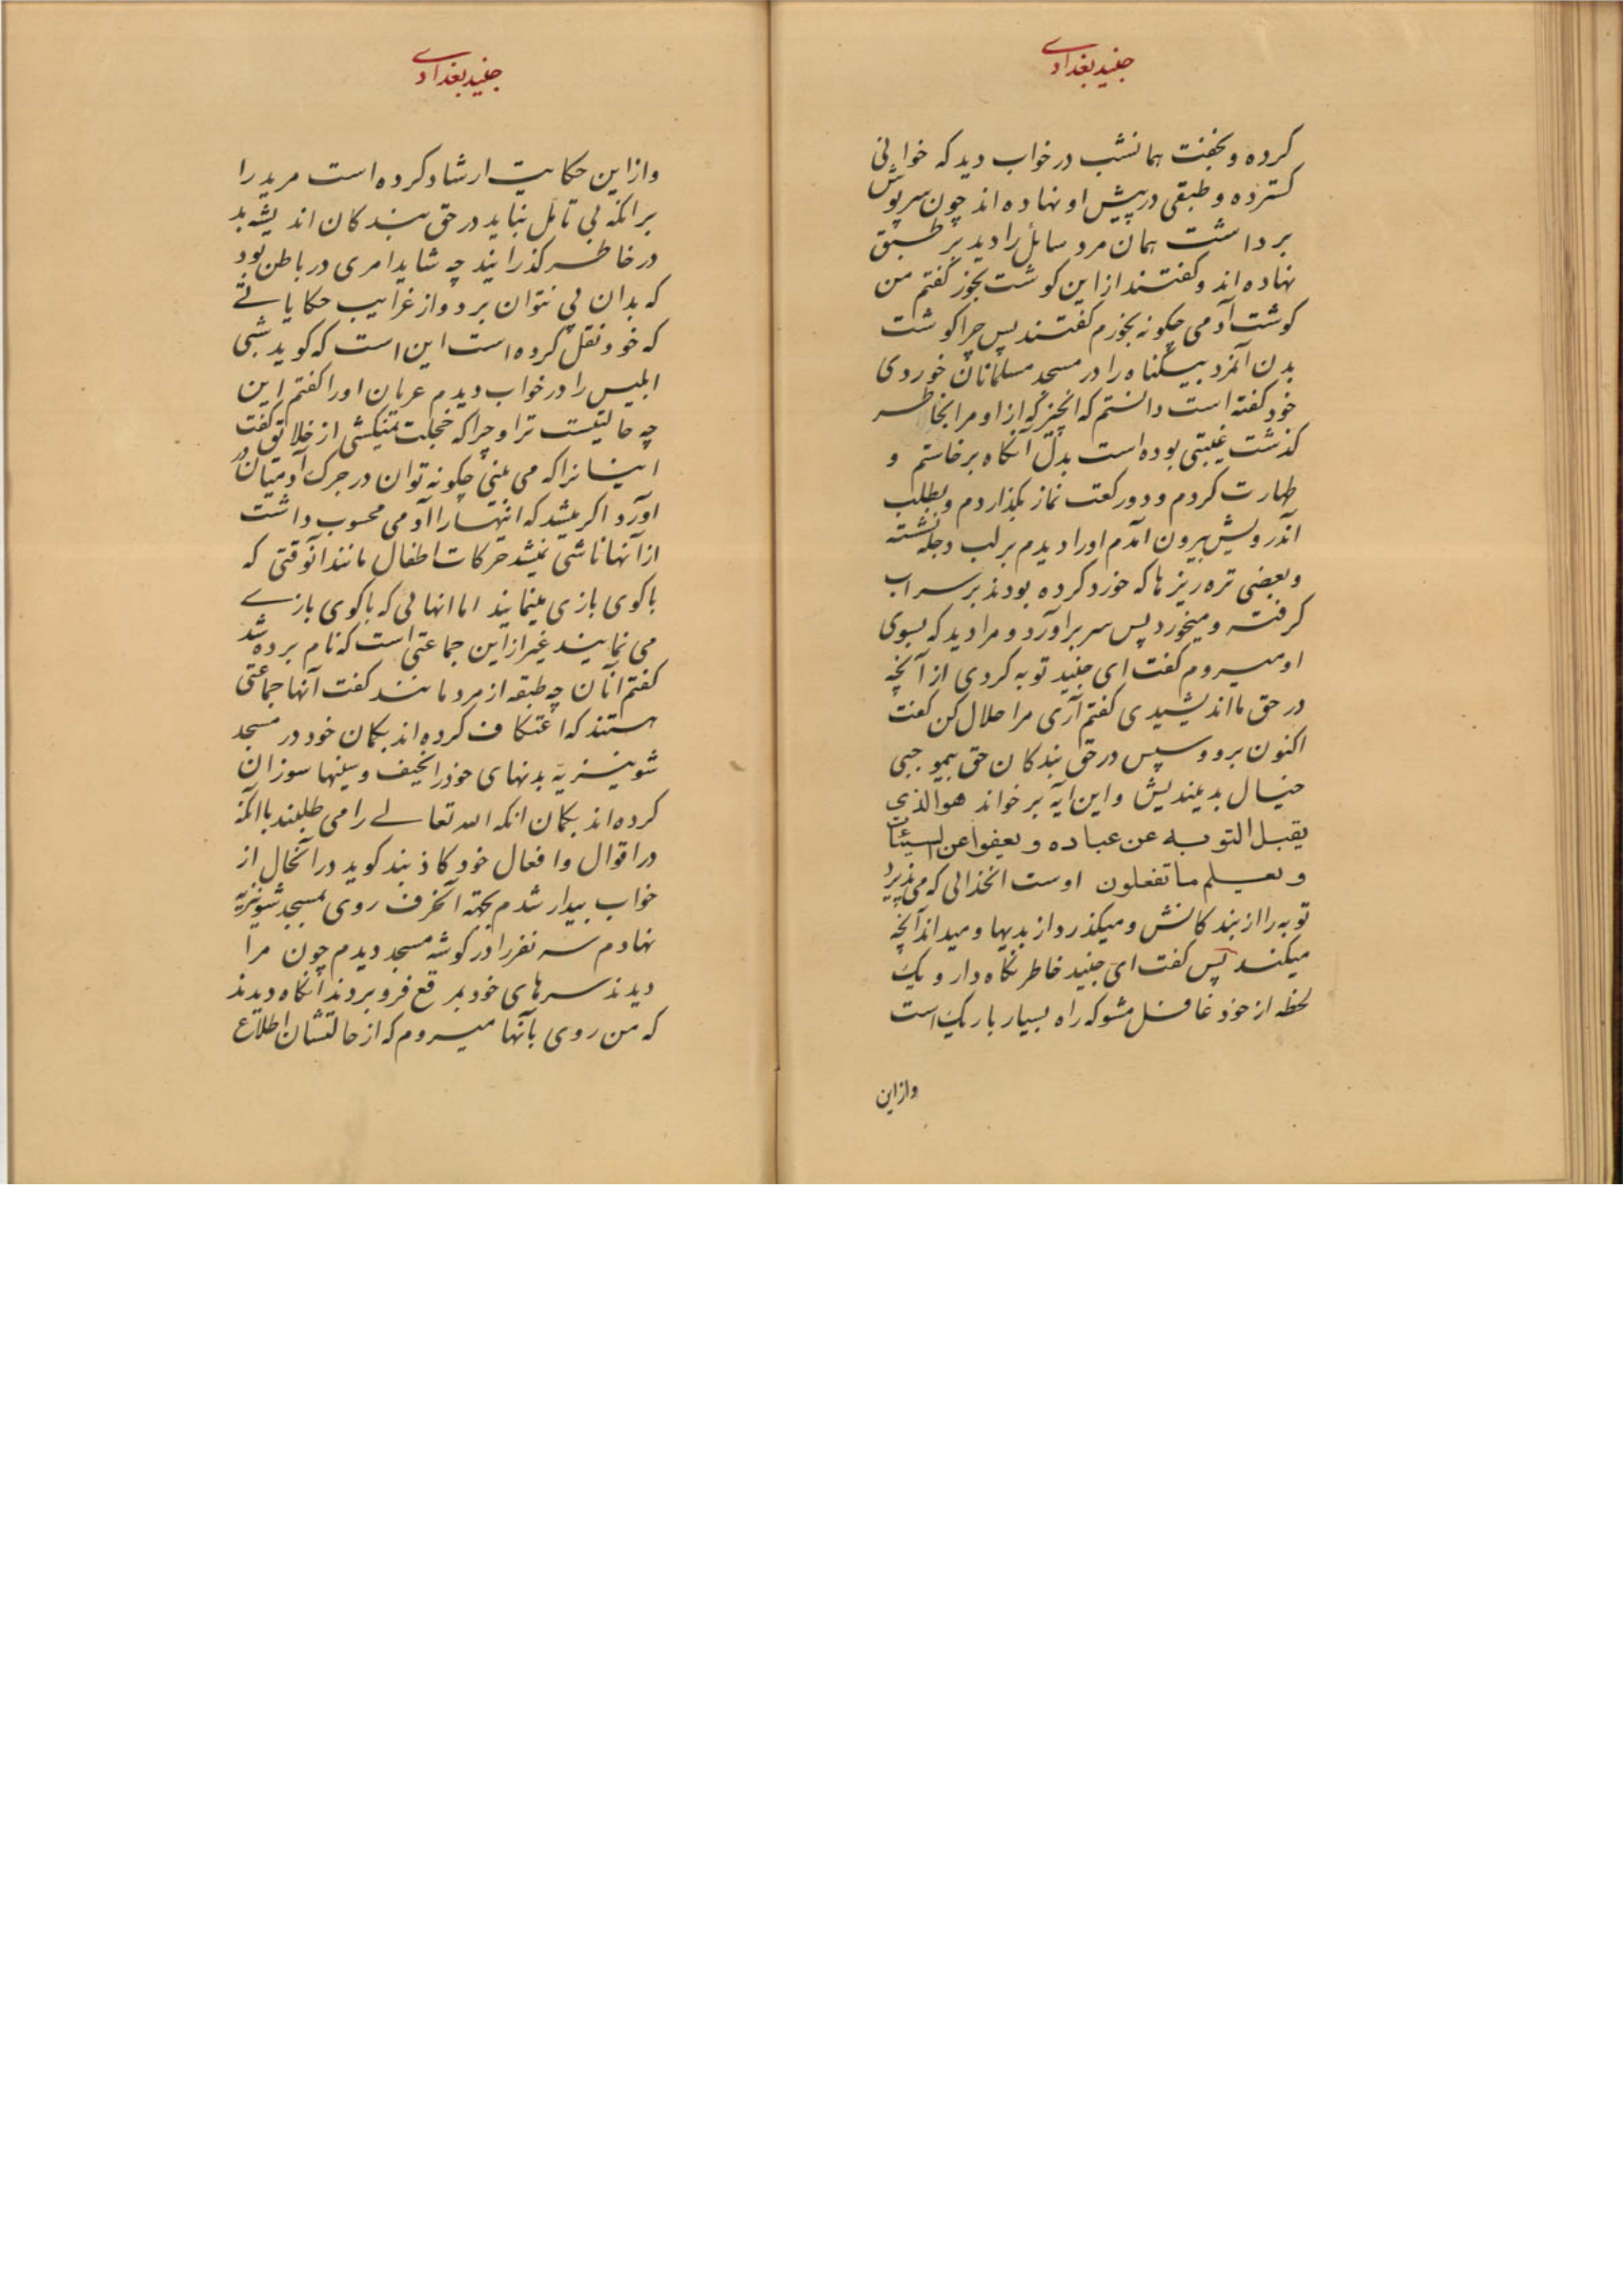 جنید بغدادی
کرده و بخفت همانشب در خواب دید که خوانی
کسترده و طبقی در پیش او نهاده اند چون سرپوش
برداشت همان مرد سائل را دید بر طبق
نهاده اند و کفتند از این کوشت بخور کفتم من
کوشت آدمی چکونه بخورم کفتند پس چرا کوشت
بدن آنمرد بیکناه را در مسجد مسلمانان خوردی
خود کفته است دانستم که انچیز که از او مرا بخاطر
کذشت غیبتی بوده است بدل آنکاه برخاستم و
طهارت کردم و دو رکعت نماز بکذاردم و بطلب
آندرویش بیرون آمدم او را دیدم بر لب دجله نشسته
و بعضی تره ریزها که خورد کرده بودند بر سر اب
کرفته و میخورد پس سر براورد و مرا دید که بسوی
او میروم کفت ای جنید توبه کردی از آنچه
در حق ما اندیشیدی کفتم آری مرا حلال کن کفت
اکنون برو و سپس در حق بندکان حق بیموجبی
خیال بد میندیش و این ایه بر خواند هو الذی
یقبل التوبه عن عباده و یعفوا عن السیئات
و یعلم ما تفعلون اوست انخدائی که می پذیرد
توبه را از بندکانش و میکذرد از بدیها و میداند آنچه
میکنند پس کفت ای جنید خاطر نکاه دار و یک
لحظه از خود غافل مشو که راه بسیار باریک است
و از این
جنید بغدادی
و از این حکایت ارشاد کرده است مرید را
بر انکه بی تامل نباید در حق بندکان اندیشه بد
در خاطر کذرانید چه شاید امری در باطن بود
که بدان پی نتوان برد و از غرایب حکایاتی
که خود نقل کرده است این است که کوید شبی
ابلیس را در خواب دیدم عریان او را کفتم این
چه حالتیست ترا و چرا که خجلت نمیکشی از خلائق کفت
اینسانرا که می بینی چکونه توان در جرک آدمیان در
اورد اکر میشد که اینها را آدمی محسوب داشت
از آنها ناشی نمیشد حرکات اطفال مانند انوقتی که
با کوی بازی مینمایند اما انهائی که با کوی بازی
می نمایند غیر از این جماعتی است که نام برده شد
کفتم آنان چه طبقه از مردمانند کفت آنها جماعتی
هستند که اعتکاف کرده اند بکمان خود در مسجد
شونیزیه بدنهای خود را نحیف و سینها سوزان
کرده اند بکمان انکه الله تعالی را می طلبند با انکه
در اقوال و افعال خود کاذبند کوید در آنحال از
خواب بیدار شدم بجهته آنحرف روی بمسجد شونیزیه
نهادم سه نفر را در کوشه مسجد دیدم چون مرا
دیدند سرهای خود بمرقع فرو بردند آنکاه دیدند
که من روی بآنها میروم که از حالتشان اطلاع